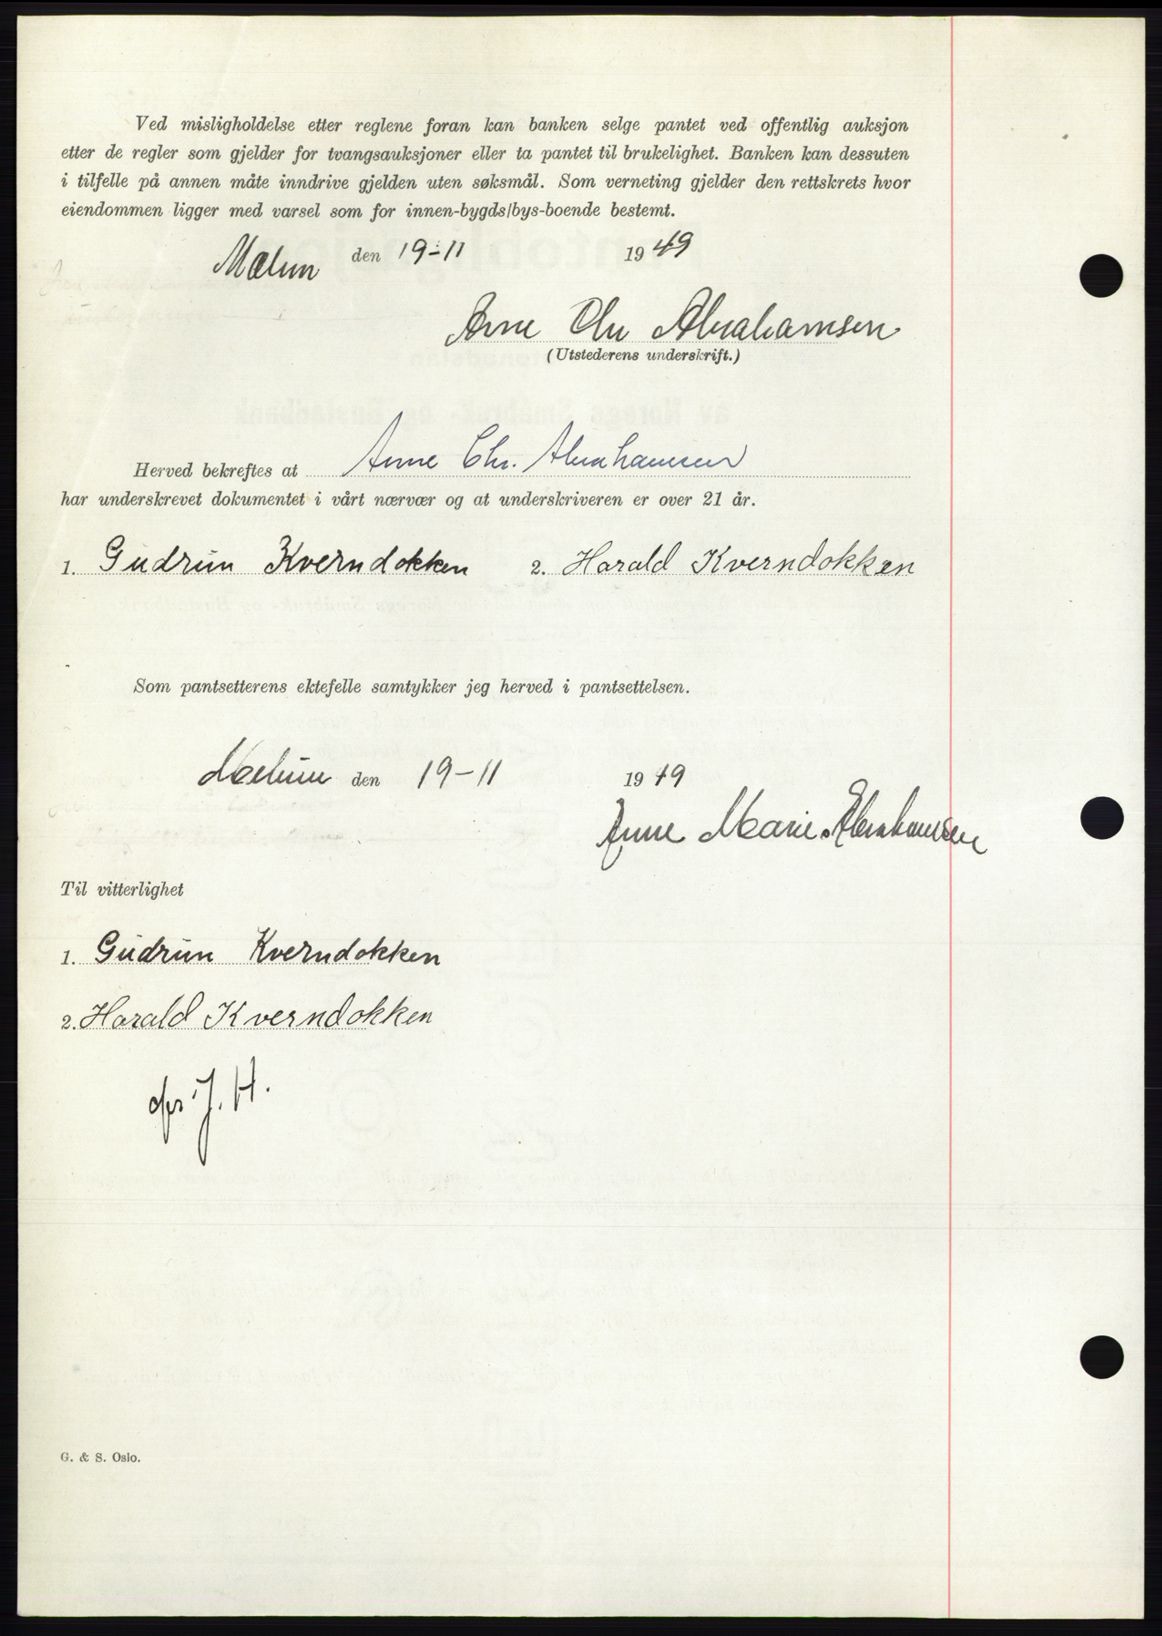 Ved misligholdelse etter reglene foran kan banken selge pantet ved offentlig auksjon
etter de regler som gjelder for tvangsauksjoner eller ta pantet til brukelighet. Banken kan dessuten
i tilfelle på annen måte inndrive gjelden uten søksmål. Som verneting gjelder den rettskrets hvor
eiendommen ligger med varsel som for innen-bygds/bys-boende bestemt.
den 19-11 1949
Arne Chr Abrahamsen
(Utstederens underskrift.)
Herved bekreftes at Arne Chr. Abrahamsen
har underskrevet dokumentet i vårt nærvær og at underskriveren er over 21 år.
1. Gudrun Kverndokken 2. Harald Kverndokken
Som pantsetterens ektefelle samtykker jeg herved i pantsettelsen.
den 19-11 1949
Anne Marie Abrahamsen
Til vitterlighet
1. Gudrun Kverndokken
2. Harald Kverndokken
J. H.
G. & S. Oslo.